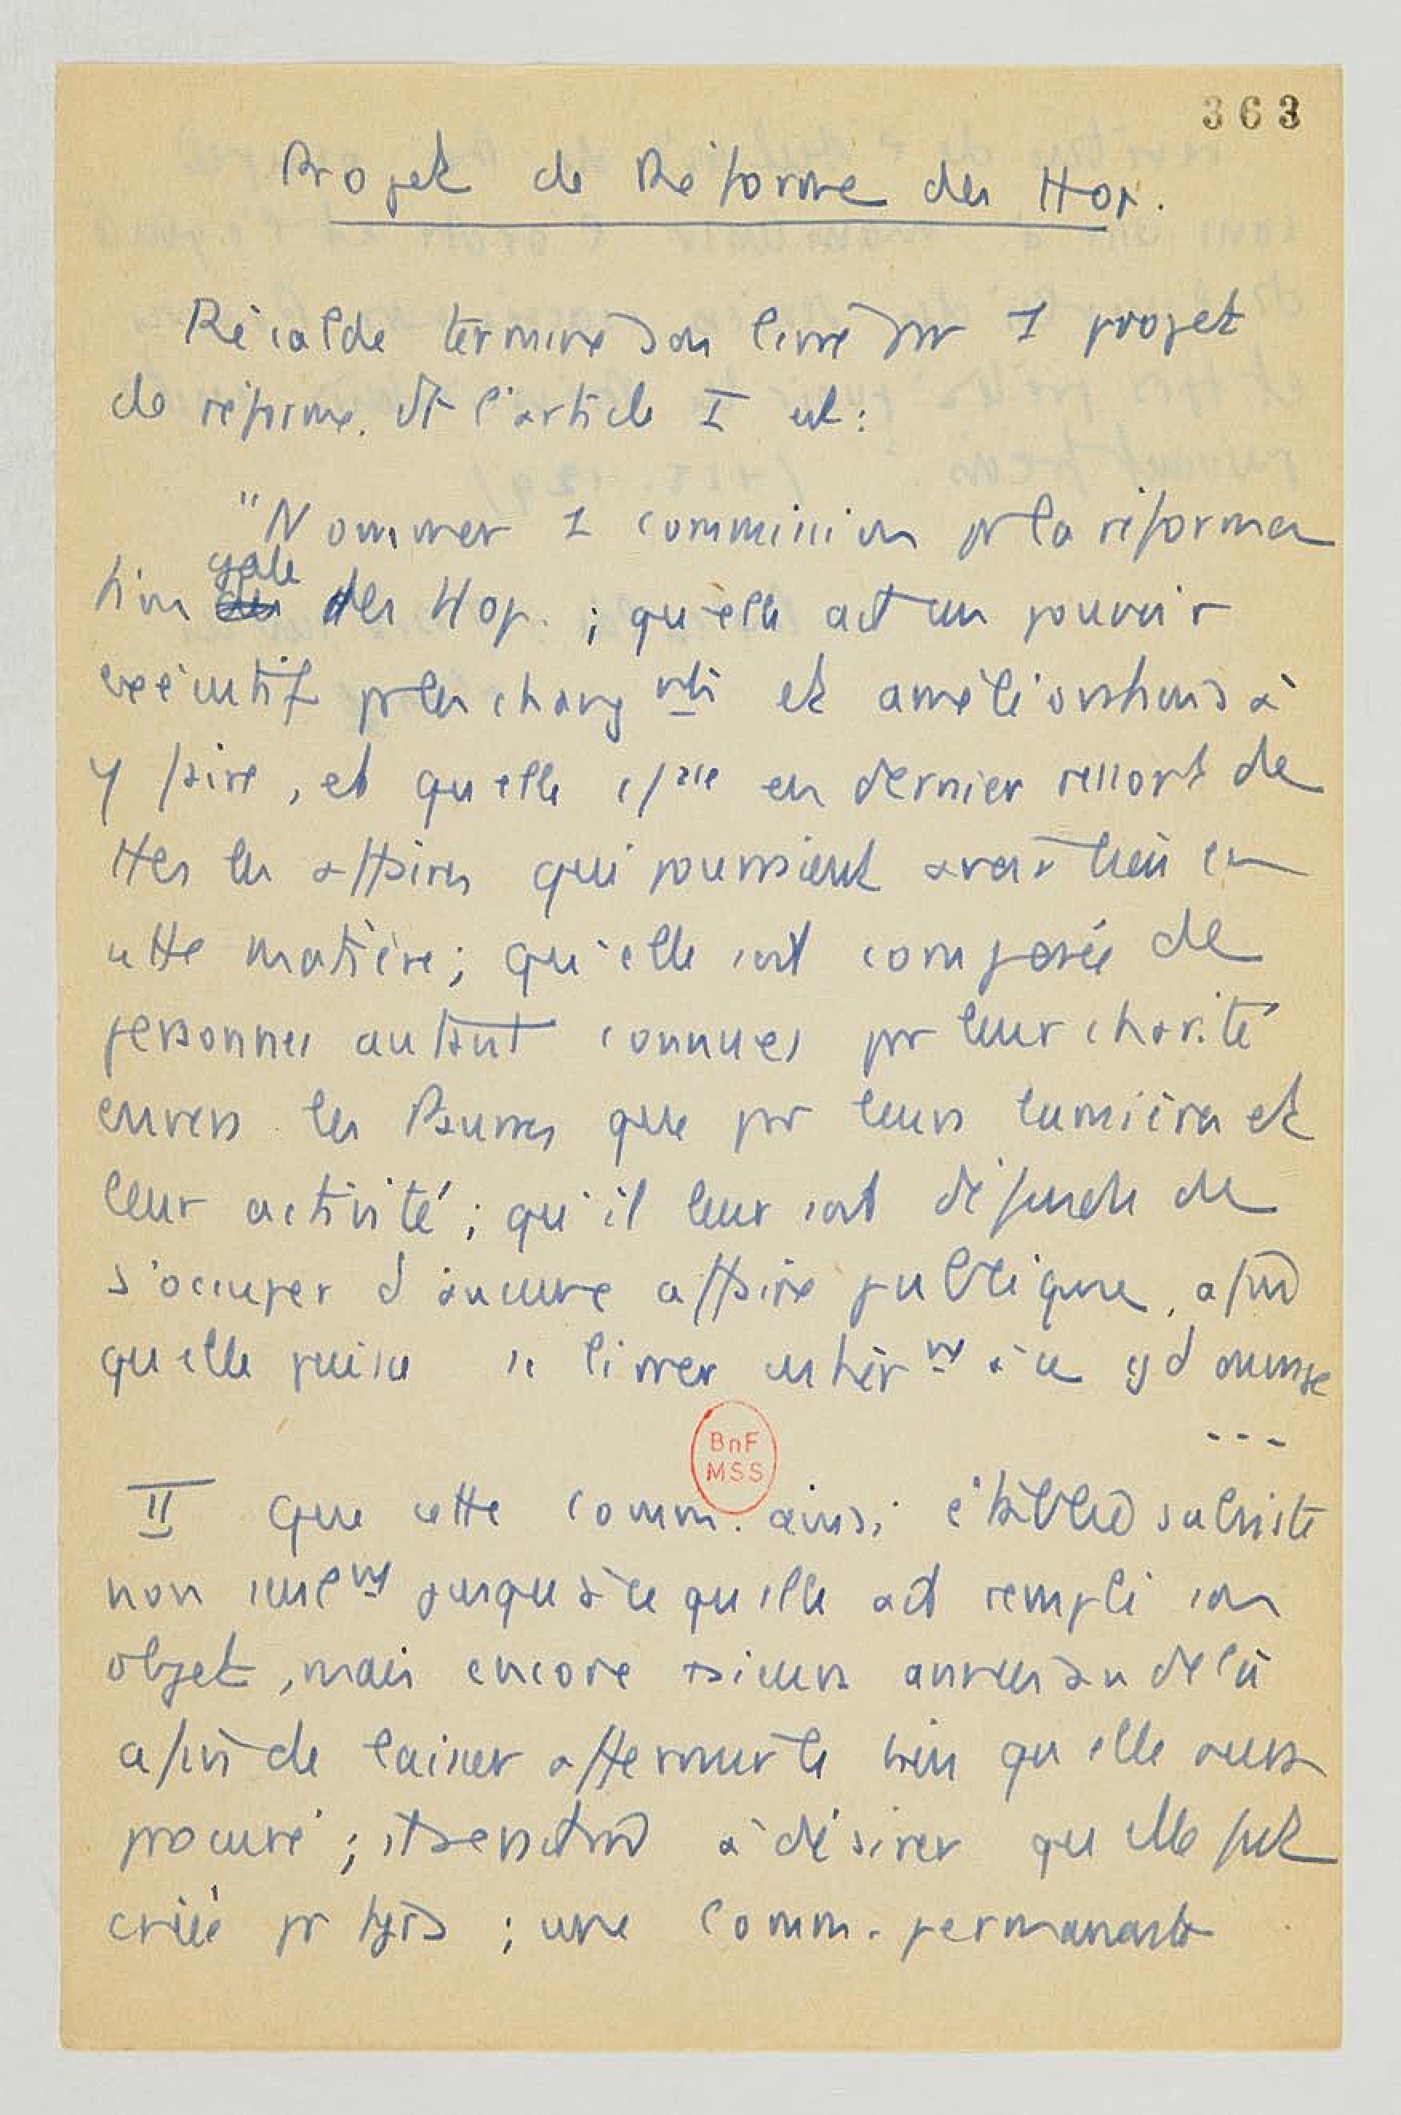 363
Projet de Réforme des Hop.
Récalde termine son livre par 1 projet
de réforme. dt l'article I est :
"Nommer 1 commission pr la réforma
tion gale des Hop. ; qu'elle ait un pouvoir
exécutif pr les changmts et améliorations à
y faire, et qu'elle en dernier ressort de
ttes les affaires qui pourraient avoir lieu en
cette matière ; qu'elle soit composée de
personnes autant connues par leur charité
envers les Pauvres que par leurs lumières et
leur activité ; qu'il leur soit défendu de
s'occuper d'aucune affaire publique, afin
qu'elle puisse se livrer entièrmt à ce gd ouvrage
---
II Que cette comm. ainsi établie subsiste
non seulmt jusqu'à ce qu'elle ait rempli son
objet, mais encore années au delà
afin de laisser affermir le bien qu'elle aura
procuré ; à désirer qu'elle fut
créée pr tjrs ; une comm. permanente
BnF
MSS